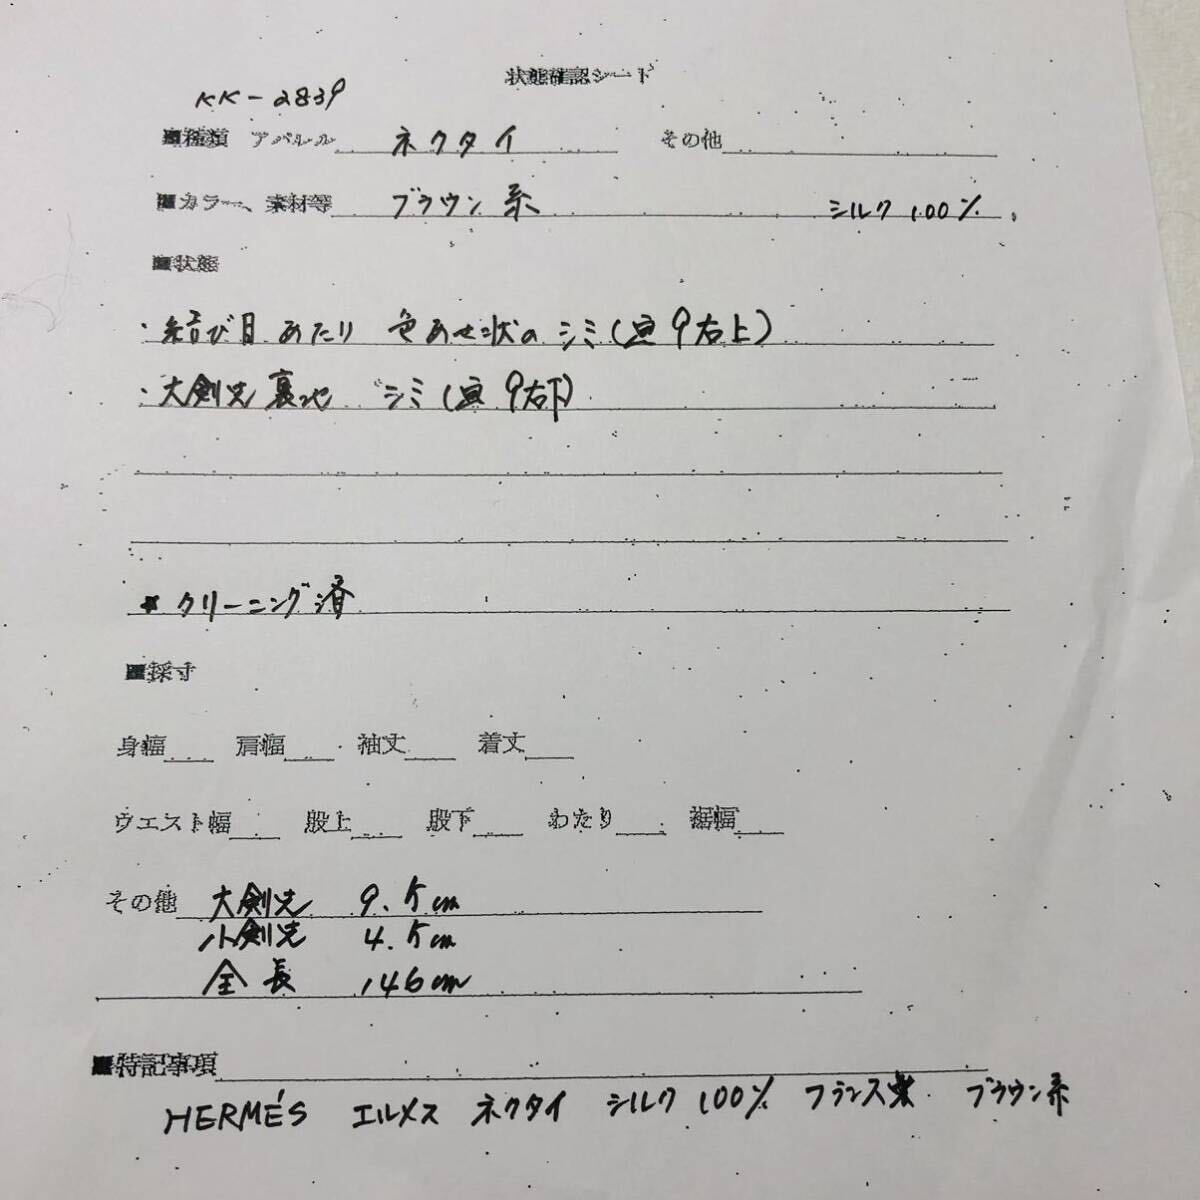 状態確認シート
KK-2839
■種類 アパレル ネクタイ その他
■カラー、素材等 ブラウン系 シルク100%
■状態
・結び目あたり 色あせ状のシミ(画9右上)
・大剣先裏地 シミ(画9右下)
* クリーニング済
■採寸
身幅 肩幅 袖丈 着丈
ウエスト幅 股上 股下 わたり 裾幅
その他 大剣先 9.5cm
小剣先 4.5cm
全長 146cm
■特記事項
HERMÉS エルメス ネクタイ シルク100% フランス製 ブラウン系